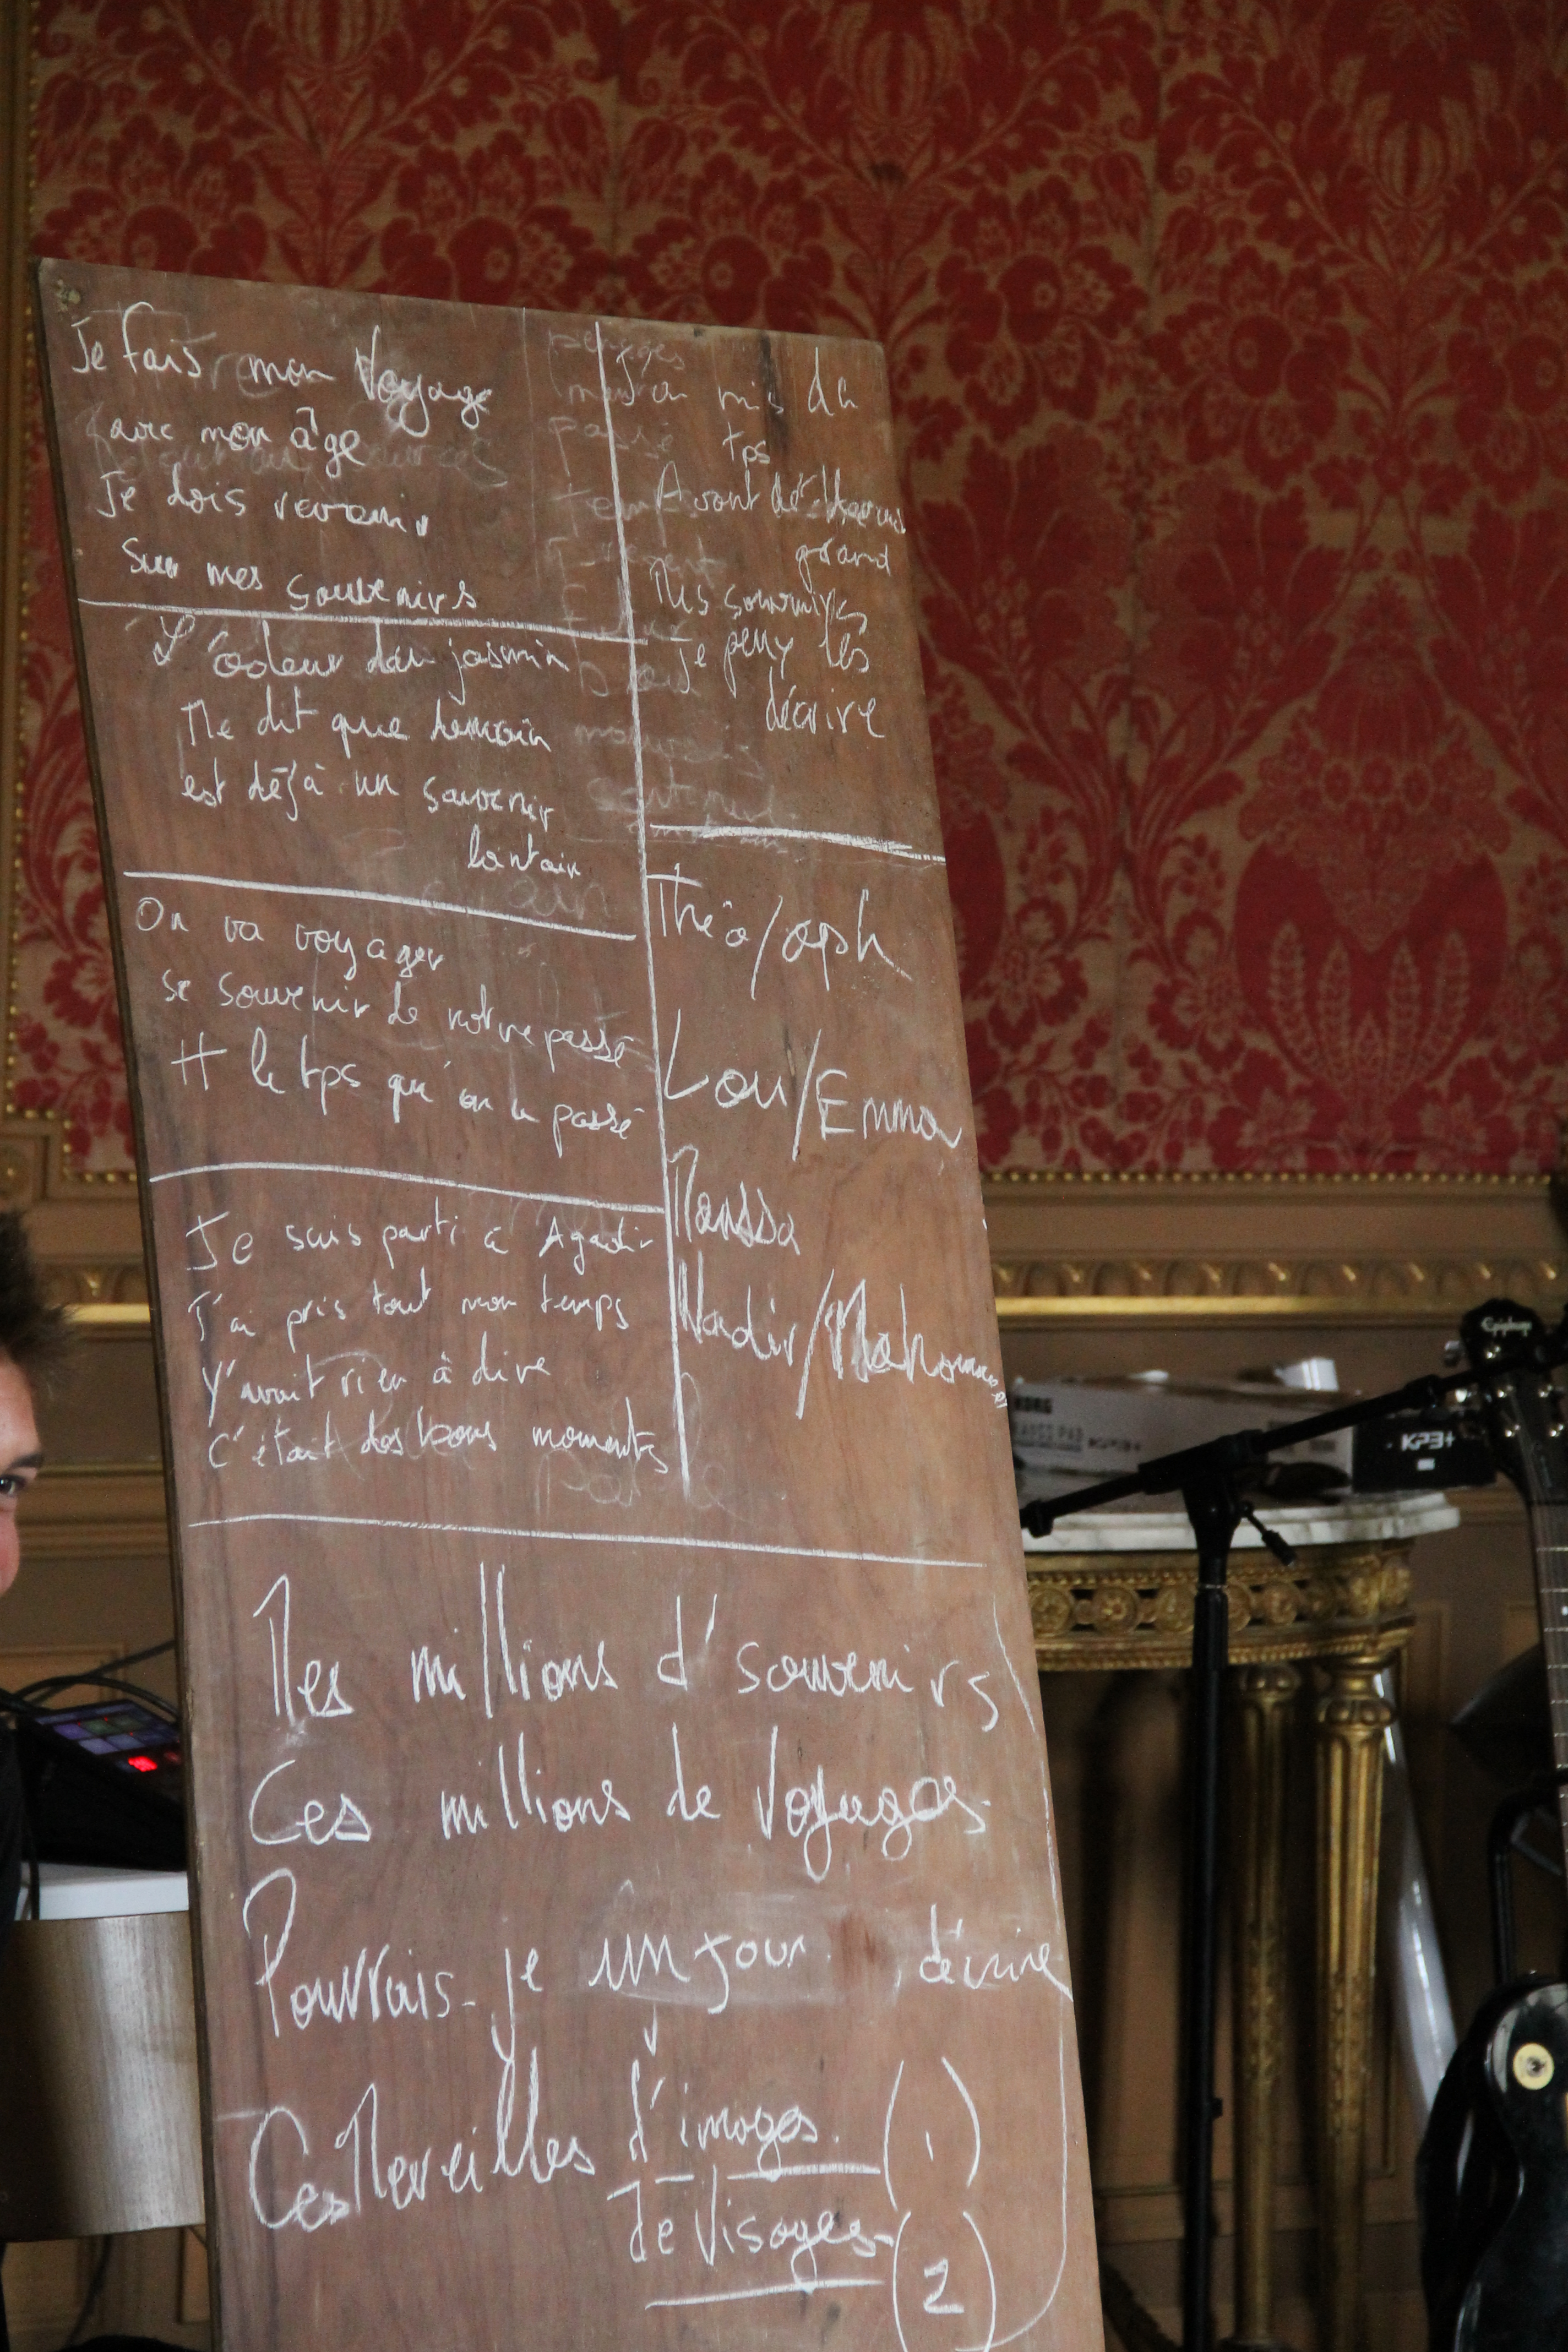 Je fais mon Voyage
avec mon âge
Je dois revenir
sur mes souvenirs
L'odeur du jasmin
Me dit que demain
est déjà un souvenir
lointain
On va voyager
se souvenir de notre passé
# le tps qu'on a passé
Je suis parti à Agadir
J'ai pris tout mon temps
Y'avait rien à dire
c'était des bons moments
on mis du
tps
Avant
grand
Mes souvenirs
je peux les
décrire
Théo/oph
Lou/Emma
Nadir/Mahomm
Mes millions d'souvenirs
Ces millions de Voyages
Pourrais-je un jour décrire
Ces Merveilles d'images. (1)
de Visages (2)
KORG
KP3+
KP3+
Epiphone